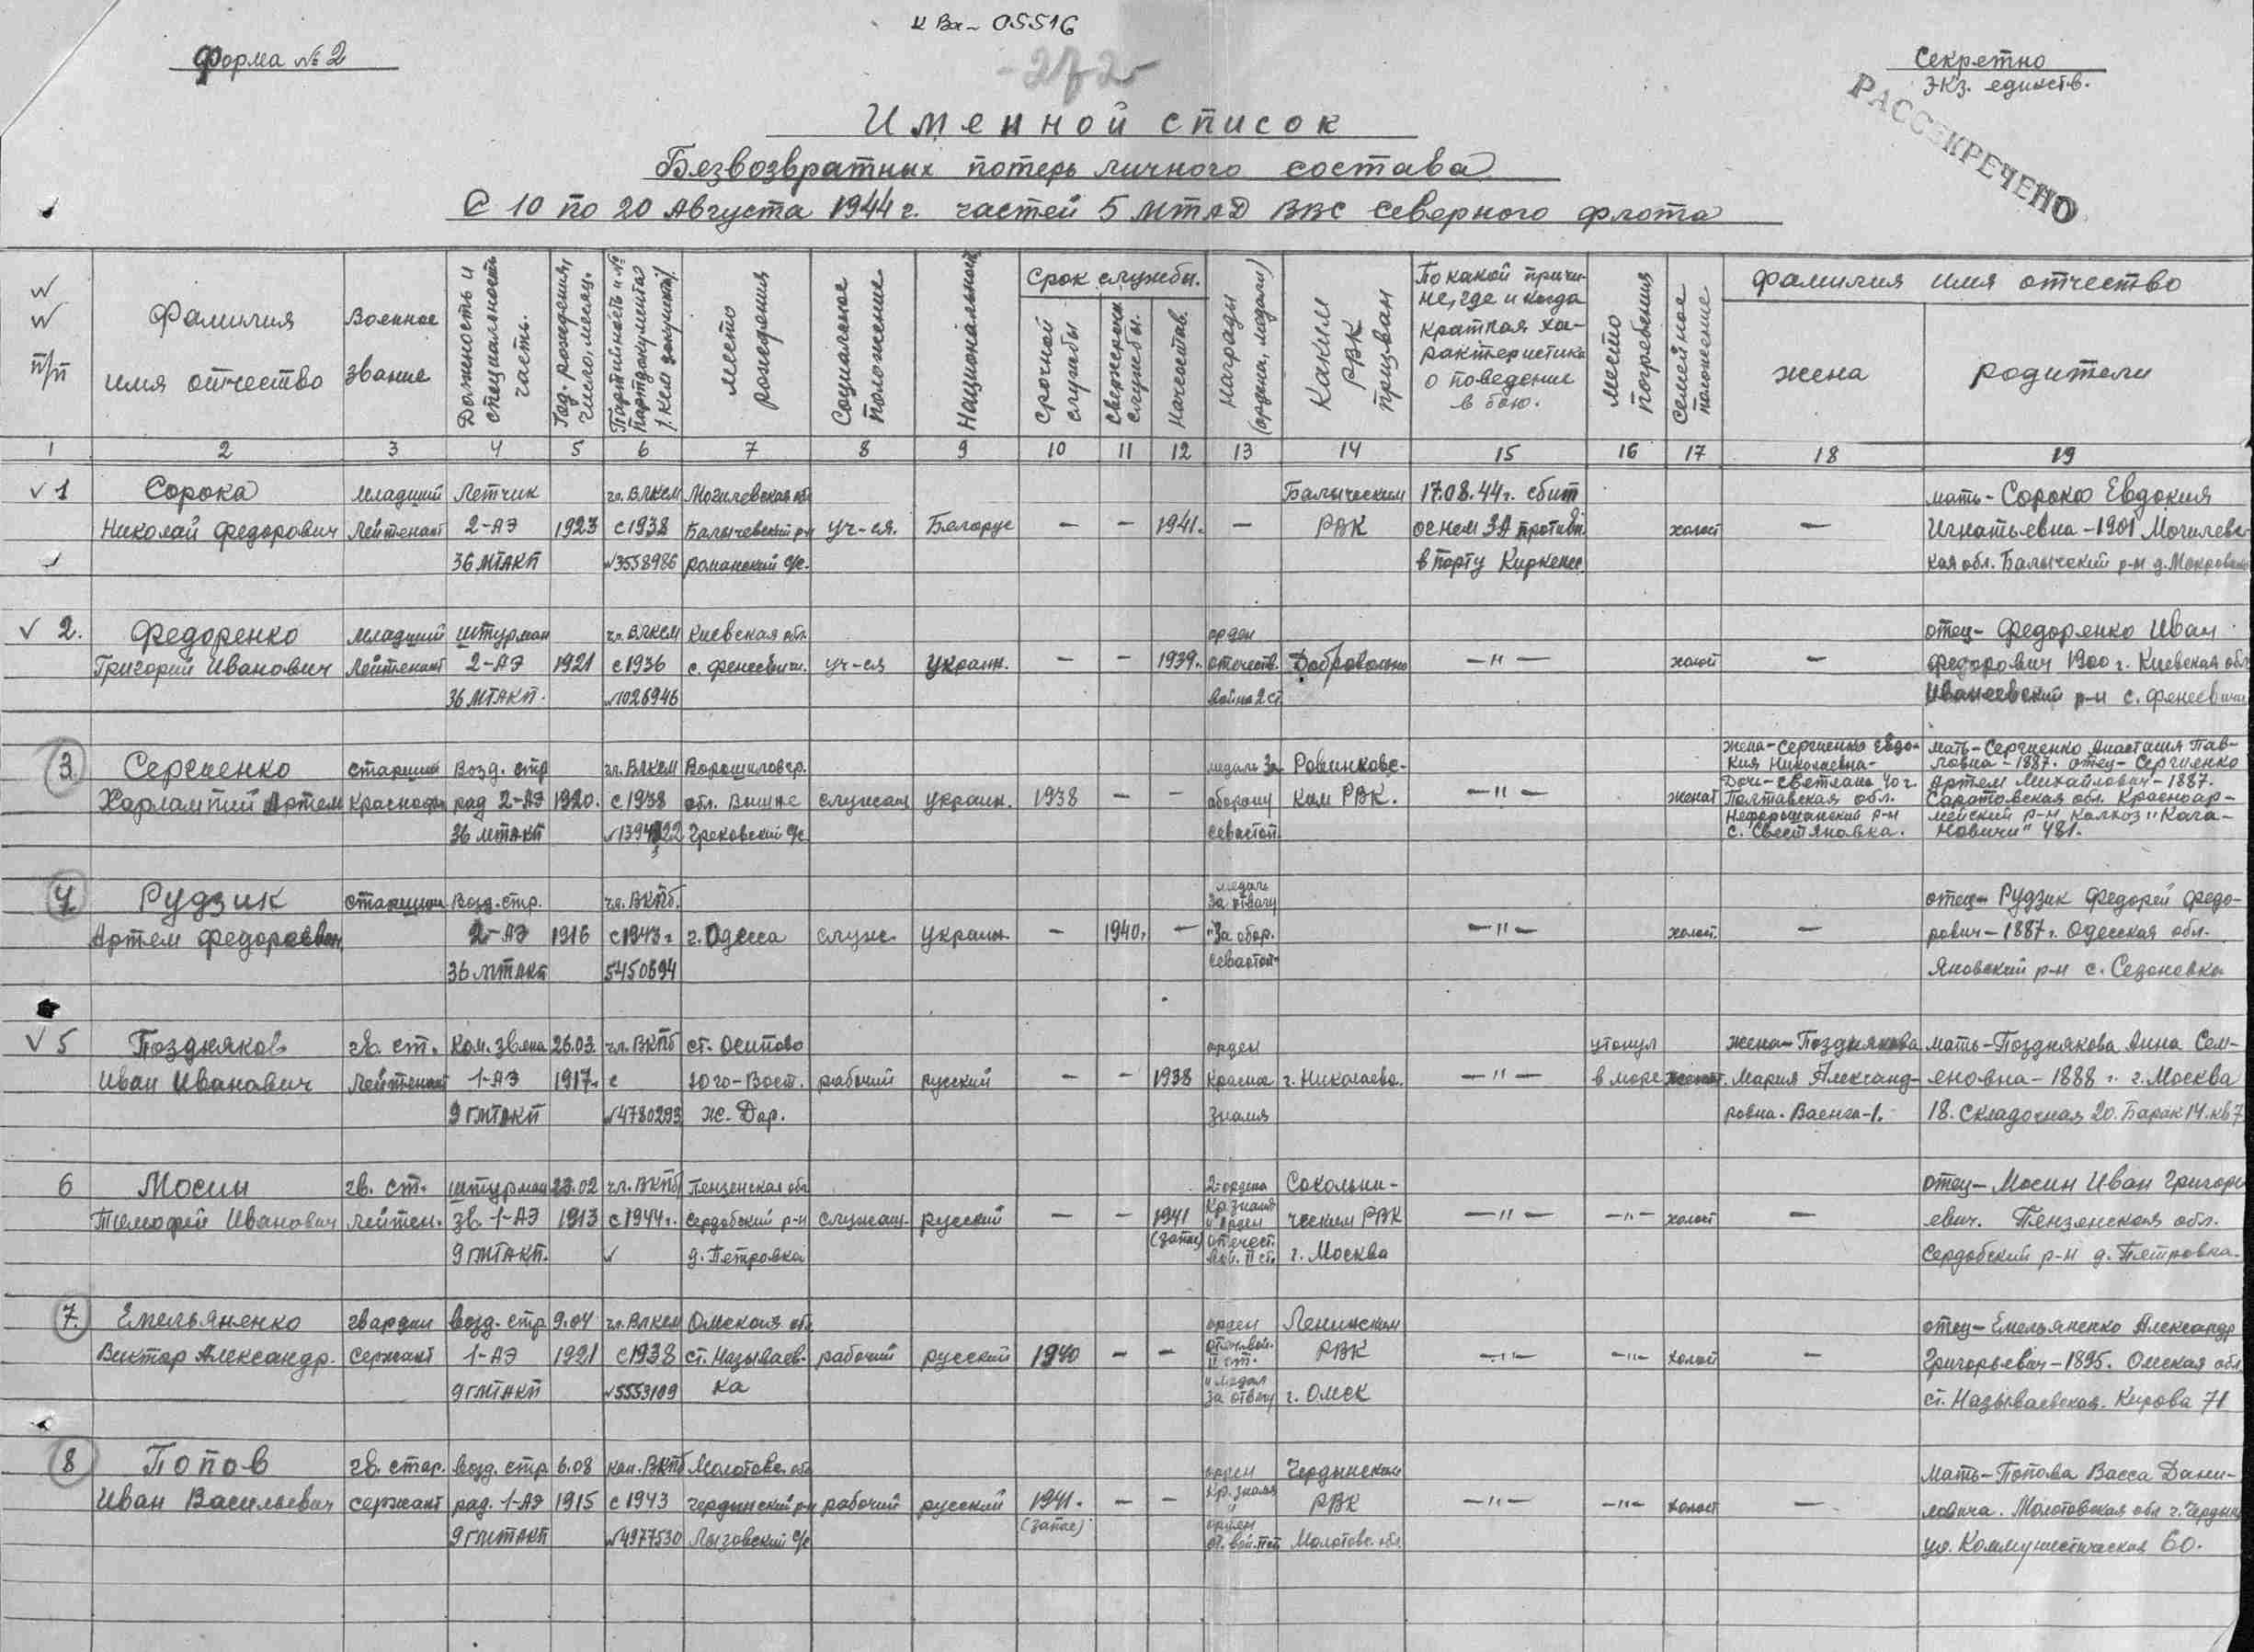 к Вх- 05516
Форма № 2
Секретно
Экз. единств.
РАССЕКРЕЧЕНО
Именной список
Безвозвратных потерь личного состава
С 10 по 20 Августа 1944 г. частей 5 МТАД ВВС Северного флота
№ № п/п
Фамилия имя отчество
Военное звание
Должность и специальность часть.
Год-рождения, число, месяц.
Партийность и № партдокумента /кем
Место рождения
Социальное положение
Национальность
Срок службы.
Срочной службы
Сверхсрочн службы.
Начсостав.
Награды (ордена, медали)
Каким РВК призван
По какой причине, где и когда краткая характеристика о поведение в бою.
Место погребения
Семейное положение
Фамилия имя отчество
жена
родители
1 2 3 4 5 6 7 8 9 10 11 12 13 14 15 16 17 18 19
1 Сорока Младший Летчик чл. ВЛКСМ Могилевская обл Балыческим 17.08.44 г. сбит мать-Сорока Евдокия
Николай Федорович Лейтенант 2-АЭ 1923 с 1938 Балычевский р-н уч-ся. Белорус — — 1941. — РВК огнем ЗА противн. холост — Игнатьевна-1901 Могилевс-
36 МТАКП №3558986 Романский с/с. в порту Киркенес. кая обл. Балыческий р-н д.
2. Федоренко Младший Штурман чл. ВЛКСМ Киевская обл. орден отец- Федоренко Иван
Григорий Иванович Лейтенант 2-АЭ 1921 с 1936 с. уч-ся Украин. — — 1939. отечеств. Добровольно —"— холост — Федорович 1900 г. Киевская обл
36 МТАКП. №1026946 войны 2 ст. р-н с.
3. Сергиенко старший Возд. стр чл. ВЛКСМ Ворошиловгр. медаль За Ровинковс- жена-Сергиенко Евдо- мать-Сергиенко Анастасия Пав-
кия Николаевна- ловна-1887. отец-Сергиенко
Дочь-Светлана 40 г. Артем Михайлович-1887.
Харлампий Артем краснофл рад 2-АЭ 1920. с 1938 обл. служащ Украин. 1938 — — оборону ким РВК. —"— женат Полтавская обл. Саратовская обл. Красноар-
р-н мейский р-н колхоз "Кага-
36 МТАКП Грековский с/с Севастоп. с. новича" 481.
4 Рудзик старшина Возд. стр. чл. ВКПб. медаль За отвагу отец- Рудзик Федорей Федо-
Артем Федорович 2-АЭ 1916 с 1943 г г. Одесса служ. Украин — 1940. — "За обор. —"— холост. — рович-1887 г. Одесская обл.
36 МТАКП 5450694 Севастоп" Яновский р-н с.
5 Поздняков гв. ст. Ком. звена 26.03. чл. ВКПб ст. Осипово орден утонул жена-Позднякова мать-Позднякова Анна Сем-
Иван Иванович Лейтенант 1-АЭ 1917. с Юго-Вост. рабочий русский — — 1938 Красно г. Николаева. —"— в море женат. Мария Александ- еновна-1888 г. г. Москва
9 ГМТАКП №4780293 ж. Дор. Знамя ровна. Ваенга-1. 18. Складочная 20. Барак 14. кв 7
6 Мосин гв. ст. штурман 23.02 чл. ВКПб Пензенская обл 2-ордена Сокольни- отец- Мосин Иван Григорь
Тимофей Иванович лейтен. зв. 1-АЭ 1913 с 1944 г. Сердобский р-н служащ. русский — — 1941 Кр. знамя ческим РВК —"— —"— холост — евич. Пензенская обл.
(запас) и орден
9 ГМТАКП. № д. Петровка отечест. вой. II ст. г. Москва Сердобский р-н д. Петровка.
7. Емельяненко гвардии Возд. стр 9.04 чл. ВЛКСМ Омская обл орден Ленинским отец- Емельяненко Александр
Виктор Александр. сержант 1-АЭ 1921 с 1938 ст. Называев- рабочий русский 1940 — — отеч. вой. II ст. РВК —"— —"— холост — Григорьевич-1895. Омская обл
9 ГМТАКП №5553109 ка и медаль за отвагу г. Омск ст. Называевская. Кирова 71
8 Попов гв. стар. возд. стр 6.08 кан. ВКПб Молотовс. обл орден Чердынским мать-Попова Васса Дани-
Иван Васильевич сержант рад. 1-АЭ 1915 с 1943 Чердынский р-н рабочий русский 1941. — — Кр. знамя и РВК —"— —"— холост — ловича. Молотовская обл г. Чердынь
(запас)
9 ГМТАКП №4977530 с/с орден от. вой. II ст Молотовс. обл. ул. Коммунистическая 60.